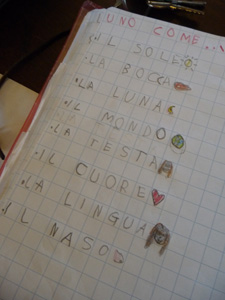 UNO COME...
.IL SOLE
.LA BOCCA
.LA LUNA
.IL MONDO
.LA TESTA
.IL CUORE
.LA LINGUA
.IL NASO